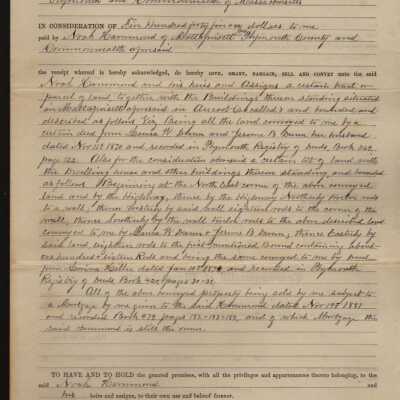 Plymouth and Commonwealth of Massachusetts
IN CONSIDERATION of Six hundred forty four dollars to me
paid by Noah Hammond of Mattapoisett Plymouth County and
Commonwealth aforesaid
the receipt whereof is hereby acknowledged, do hereby GIVE, GRANT, BARGAIN, SELL AND CONVEY unto the said
Noah Hammond and his heirs and Assigns a certain tract or
parcel of land together with the Buildings thereon standing situated
in Mattapoisett aforesaid in so called and bounded and
described as follows Viz, being all the land conveyed to me by a
certain deed from W. Dunn and Jerome B. Dunn her husband
dated Nov 1870 and recorded in Plymouth Registry of Deeds, Book
page 122. Also for the consideration aforesaid a certain lot of land with
the Dwelling house and other buildings thereon standing, and bounded
as follows. Beginning at the North East corner of the above conveyed
land and by the highway, thence by the highway Northerly rods
to a wall, thence Westerly by said wall eighteen rods to the corner of the
wall, thence Southerly by the wall rods to the above described land
conveyed to me by W. Dunn & Jerome B. Dunn, thence Easterly by
said land eighteen rods to the first mentioned Bound containing about
one hundred & sixteen Rods and being the same conveyed to me by Deed
from dated Jan and recorded in Plymouth
Registry of Deeds Book pages 30-31.
All of the above conveyed property being sold by me subject to
a Mortgage by me given to the said Hammond dated Nov 1881
and recorded Book 479 pages and of which Mortgage the
said Hammond is still the owner.
TO HAVE AND TO HOLD the granted premises, with all the privileges and appurtenances thereto belonging, to the
said Noah Hammond and
his heirs and assigns, to their own use and behoof forever.